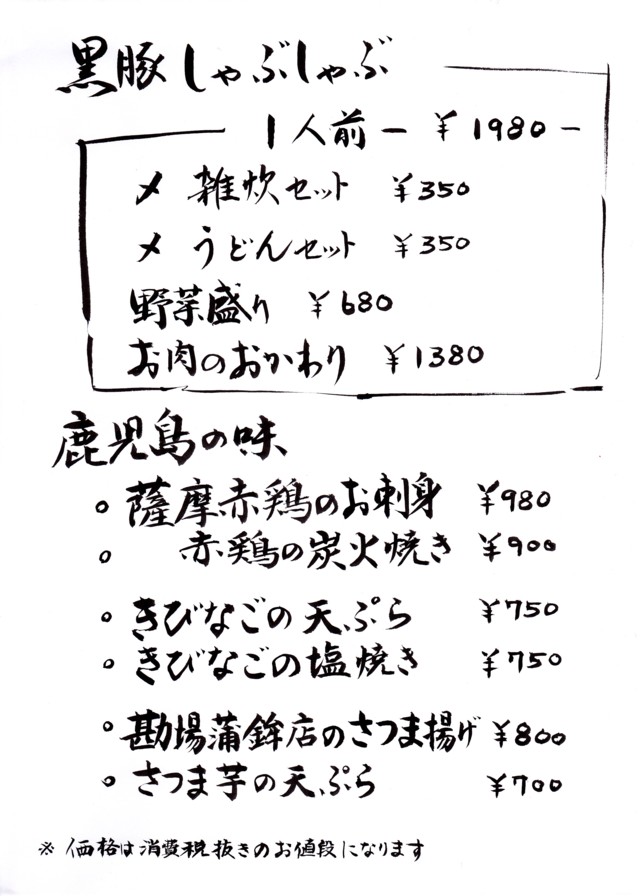 黒豚しゃぶしゃぶ
1人前ー ¥1980ー
〆 雑炊セット ¥350
〆 うどんセット ¥350
野菜盛り ¥680
お肉のおかわり ¥1380
鹿児島の味
○ 薩摩赤鶏のお刺身 ¥980
○ 赤鶏の炭火焼き ¥900
○ きびなごの天ぷら ¥750
○ きびなごの塩焼き ¥750
○ 勘場蒲鉾店のさつま揚げ ¥800
○ さつま芋の天ぷら ¥700
※ 価格は消費税抜きのお値段になります